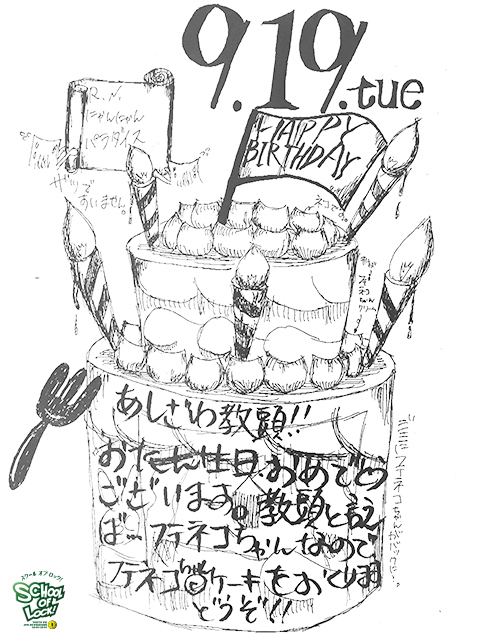 9.19.tue
R.N.
にゃんにゃん
パラダイス
HAPPY
BIRTHDAY
ザツで
すいません。
あしざわ教頭!!
おたん生日、おめでとう
ございます。教頭と言え
ば…フテネコちゃんなので
フテネコちゃんケーキをおくります
どうぞ!!
スクール オブ ロック!
SCHOOL
OF
LOCK!